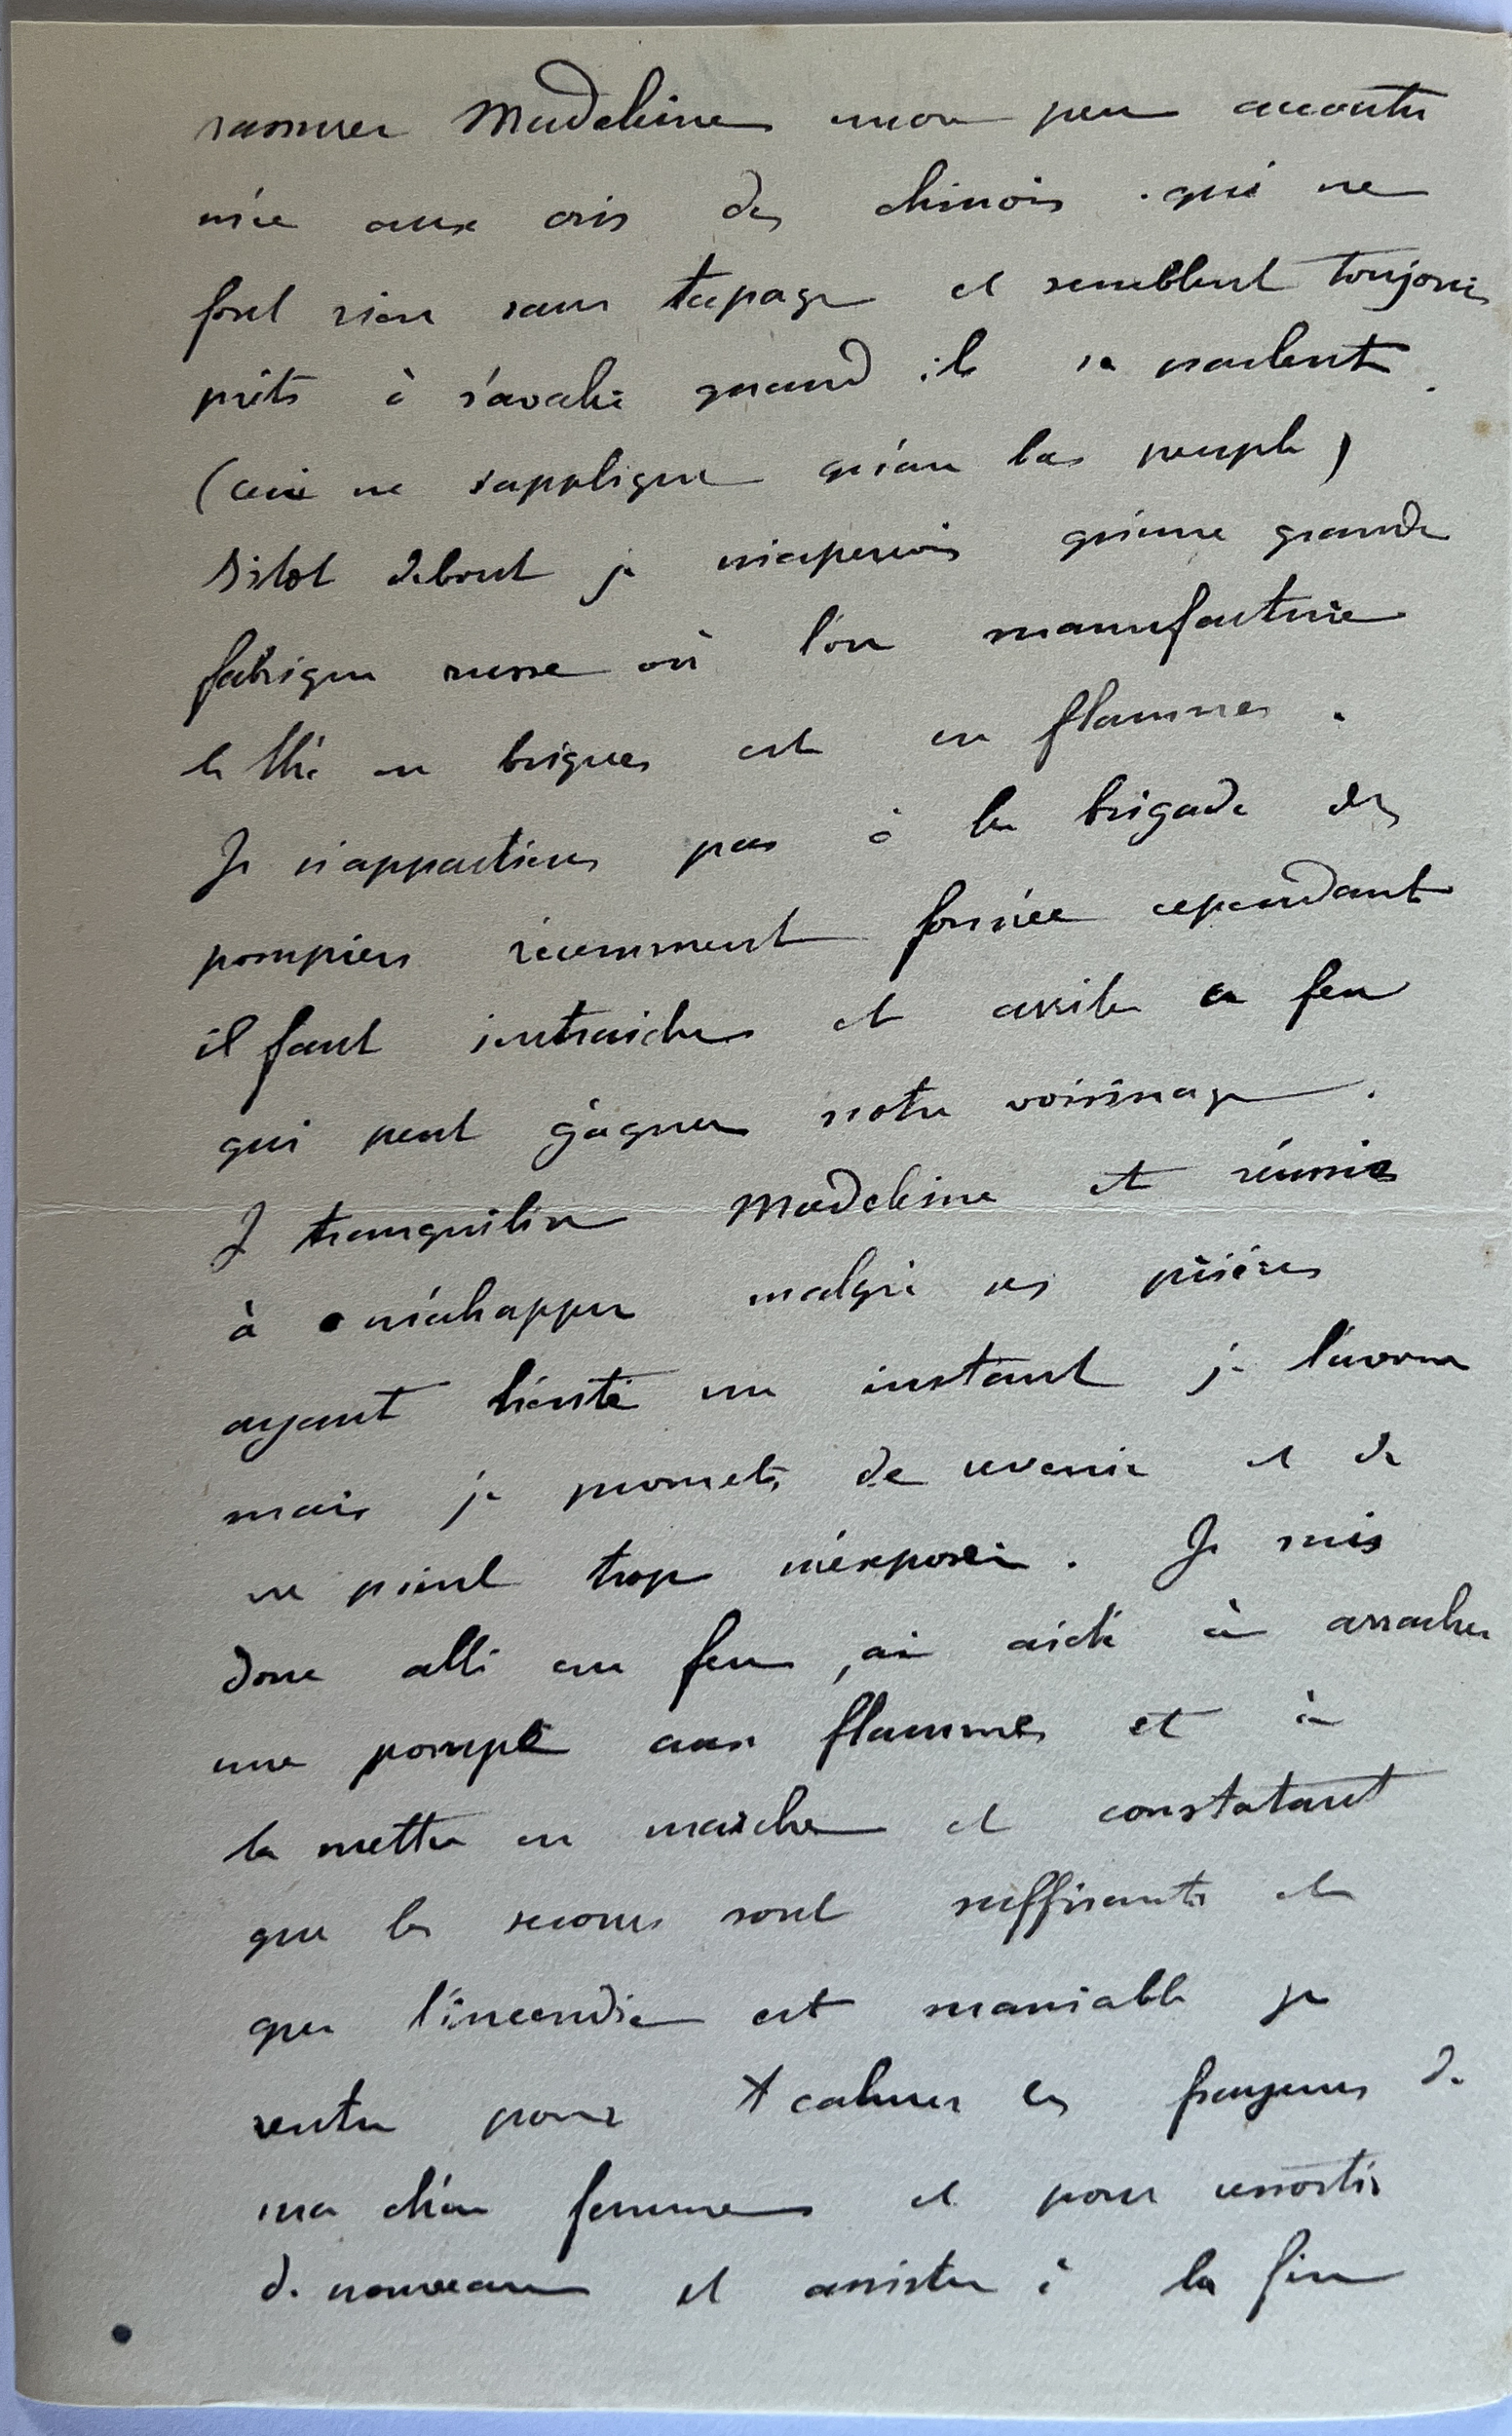 rassurer Madeleine encore peu accoutu
mée aux cris des chinois qui ne
font rien sans tapage et semblent toujours
prêts à s'avaler quand ils se parlent.
(ceci ne s'applique qu'au bas peuple)
Sitôt debout je m'aperçois qu'une grande
fabrique russe où l'on manufacture
le thé en briques est en flammes.
Je n'appartiens pas à la brigade des
pompiers récemment formée cependant
il faut et au feu
qui peut gagner notre voisinage.
Je tranquilise Madeleine et réussis
à m'échapper malgré ses prières
ayant hésité un instant je l'avoue
mais je promets de revenir et de
ne point trop m'exposer. Je suis
donc allé au feu, ai aidé à arracher
une pompe aux flammes et à
la mettre en marche et constatant
que les secours sont suffisants et
que l'incendie est maniable je
rentre pour calmer les frayeurs de
ma chère femme et pour ressortir
de nouveau et assister à la fin